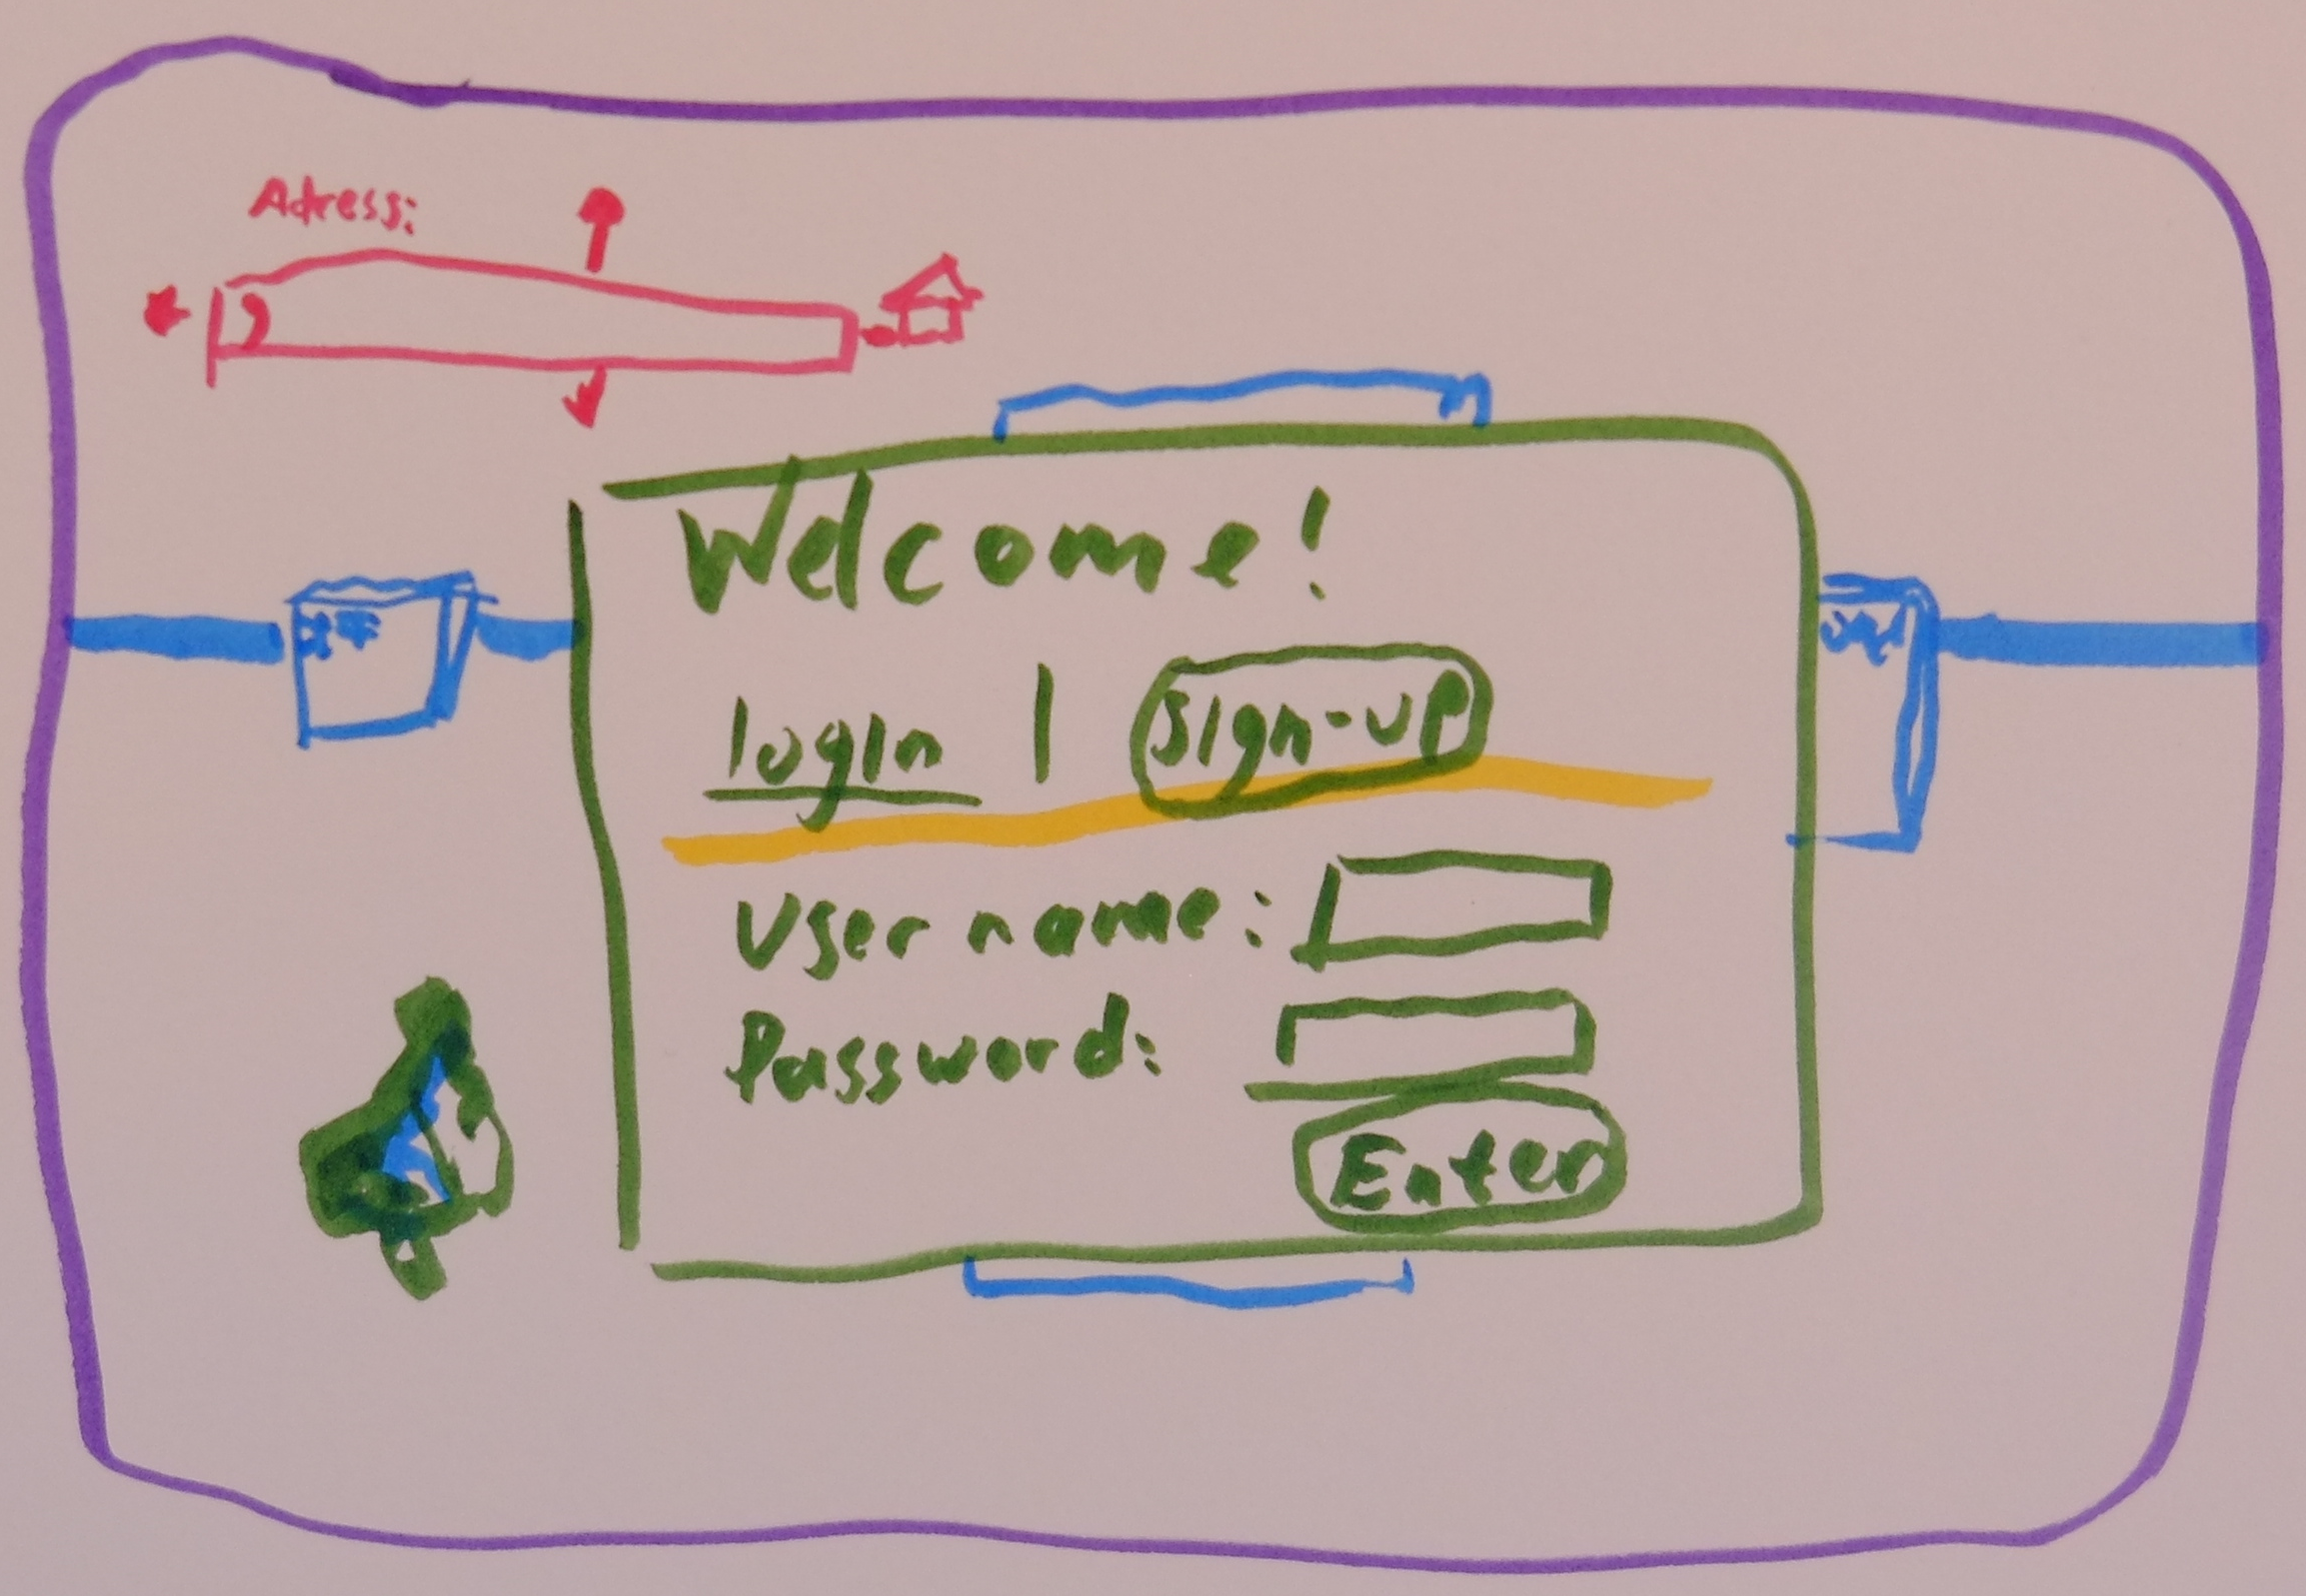 Adress:
Welcome!
login | sign-up
User name:
Password:
Enter